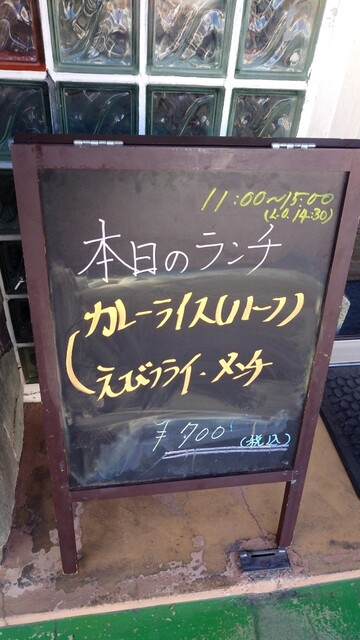 11:00~15:00
(L.O.14:30)
本日のランチ
カレーライス(ハーフ)
えびフライ・メンチ
¥700
(税込)